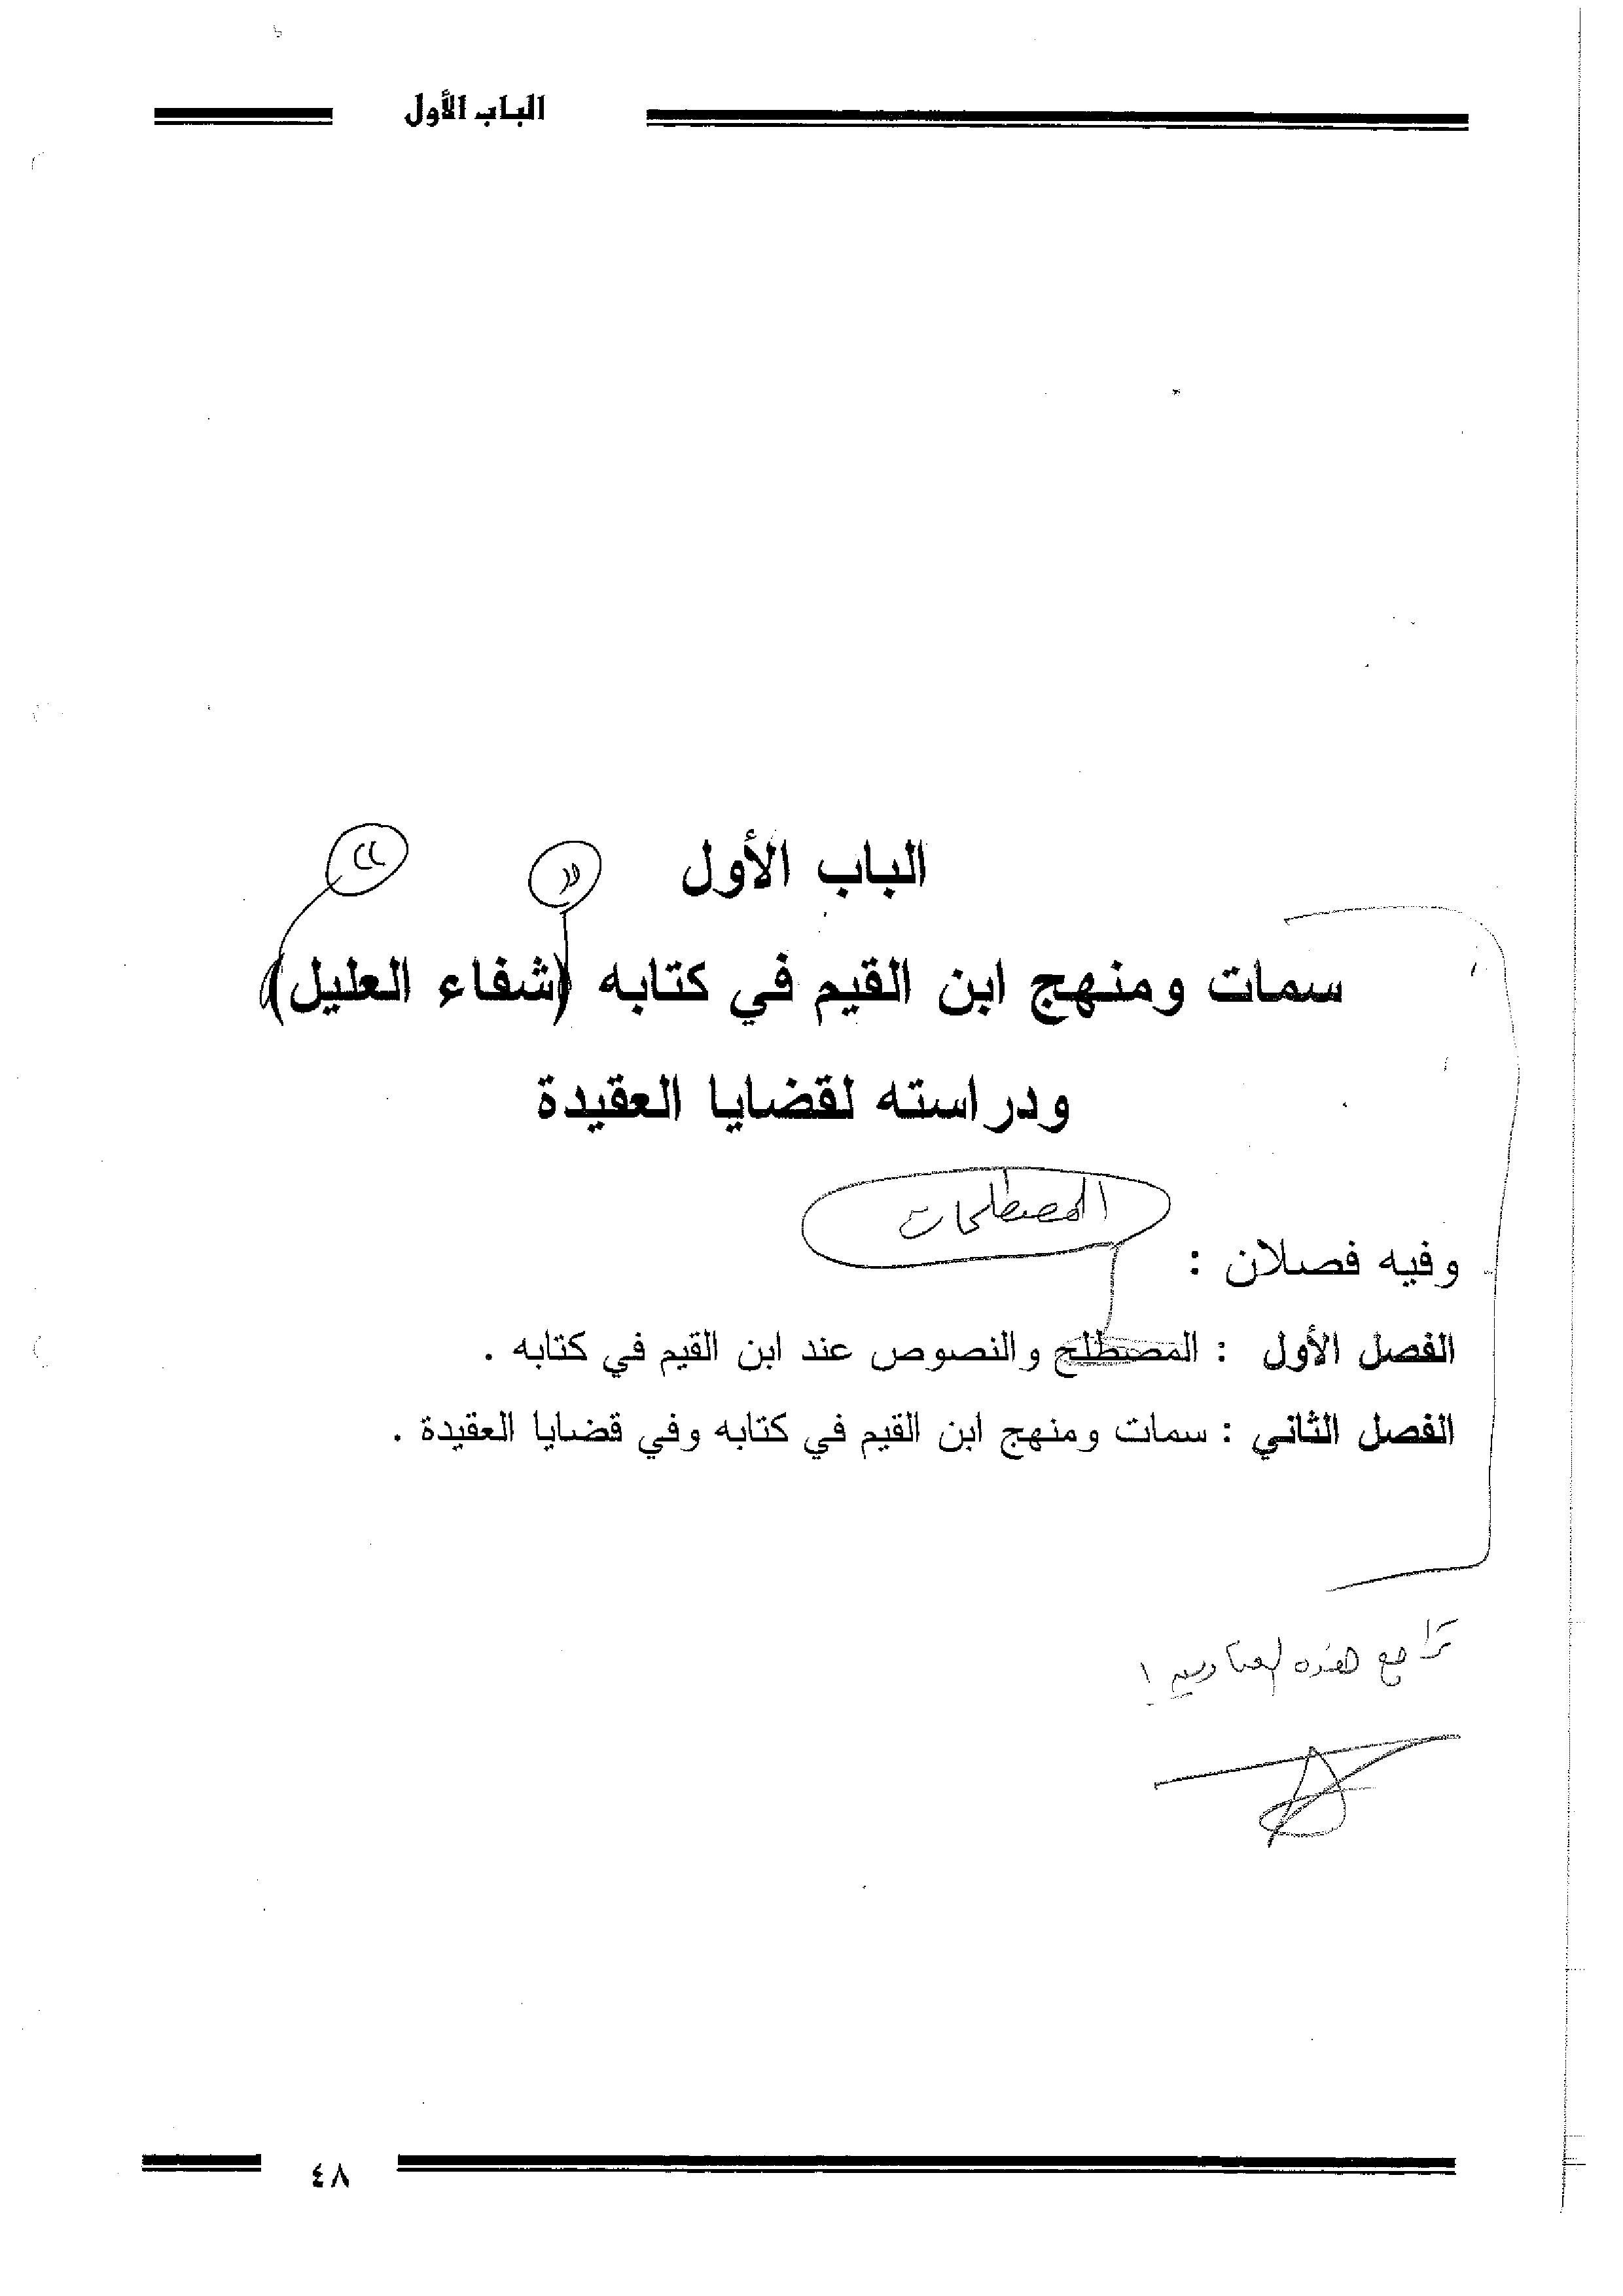 الباب الأول
« »
الباب الأول
سمات ومنهج ابن القيم في كتابه (شفاء العليل)
ودراسته لقضايا العقيدة
المصطلحات
وفيه فصلان :
الفصل الأول : المصطلح والنصوص عند ابن القيم في كتابه .
الفصل الثاني : سمات ومنهج ابن القيم في كتابه وفي قضايا العقيدة .
تراجع هذه العناوين !
٤٨